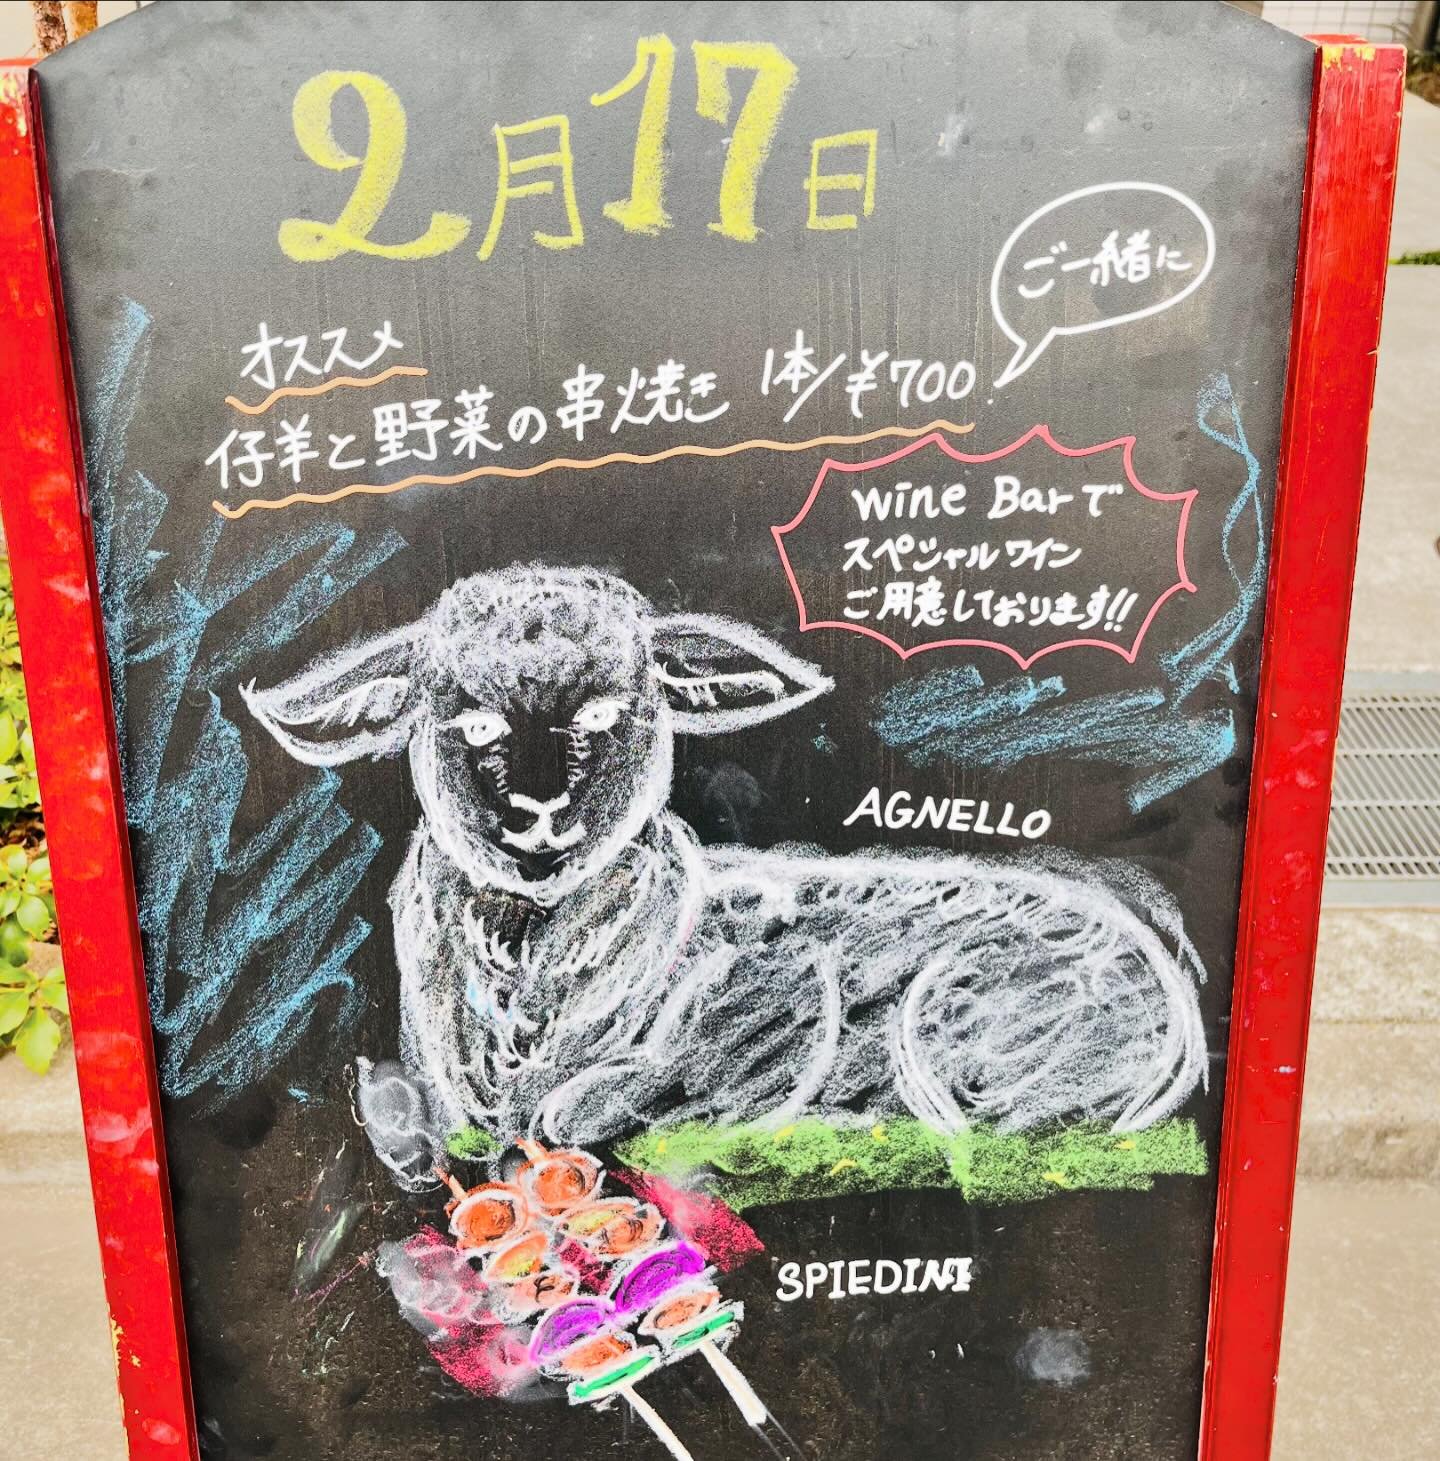 2月17日
ご一緒に
オススメ
仔羊と野菜の串焼き 1本/¥700.
Wine Barで
スペシャルワイン
ご用意しております!!
AGNELLO
SPIEDINI